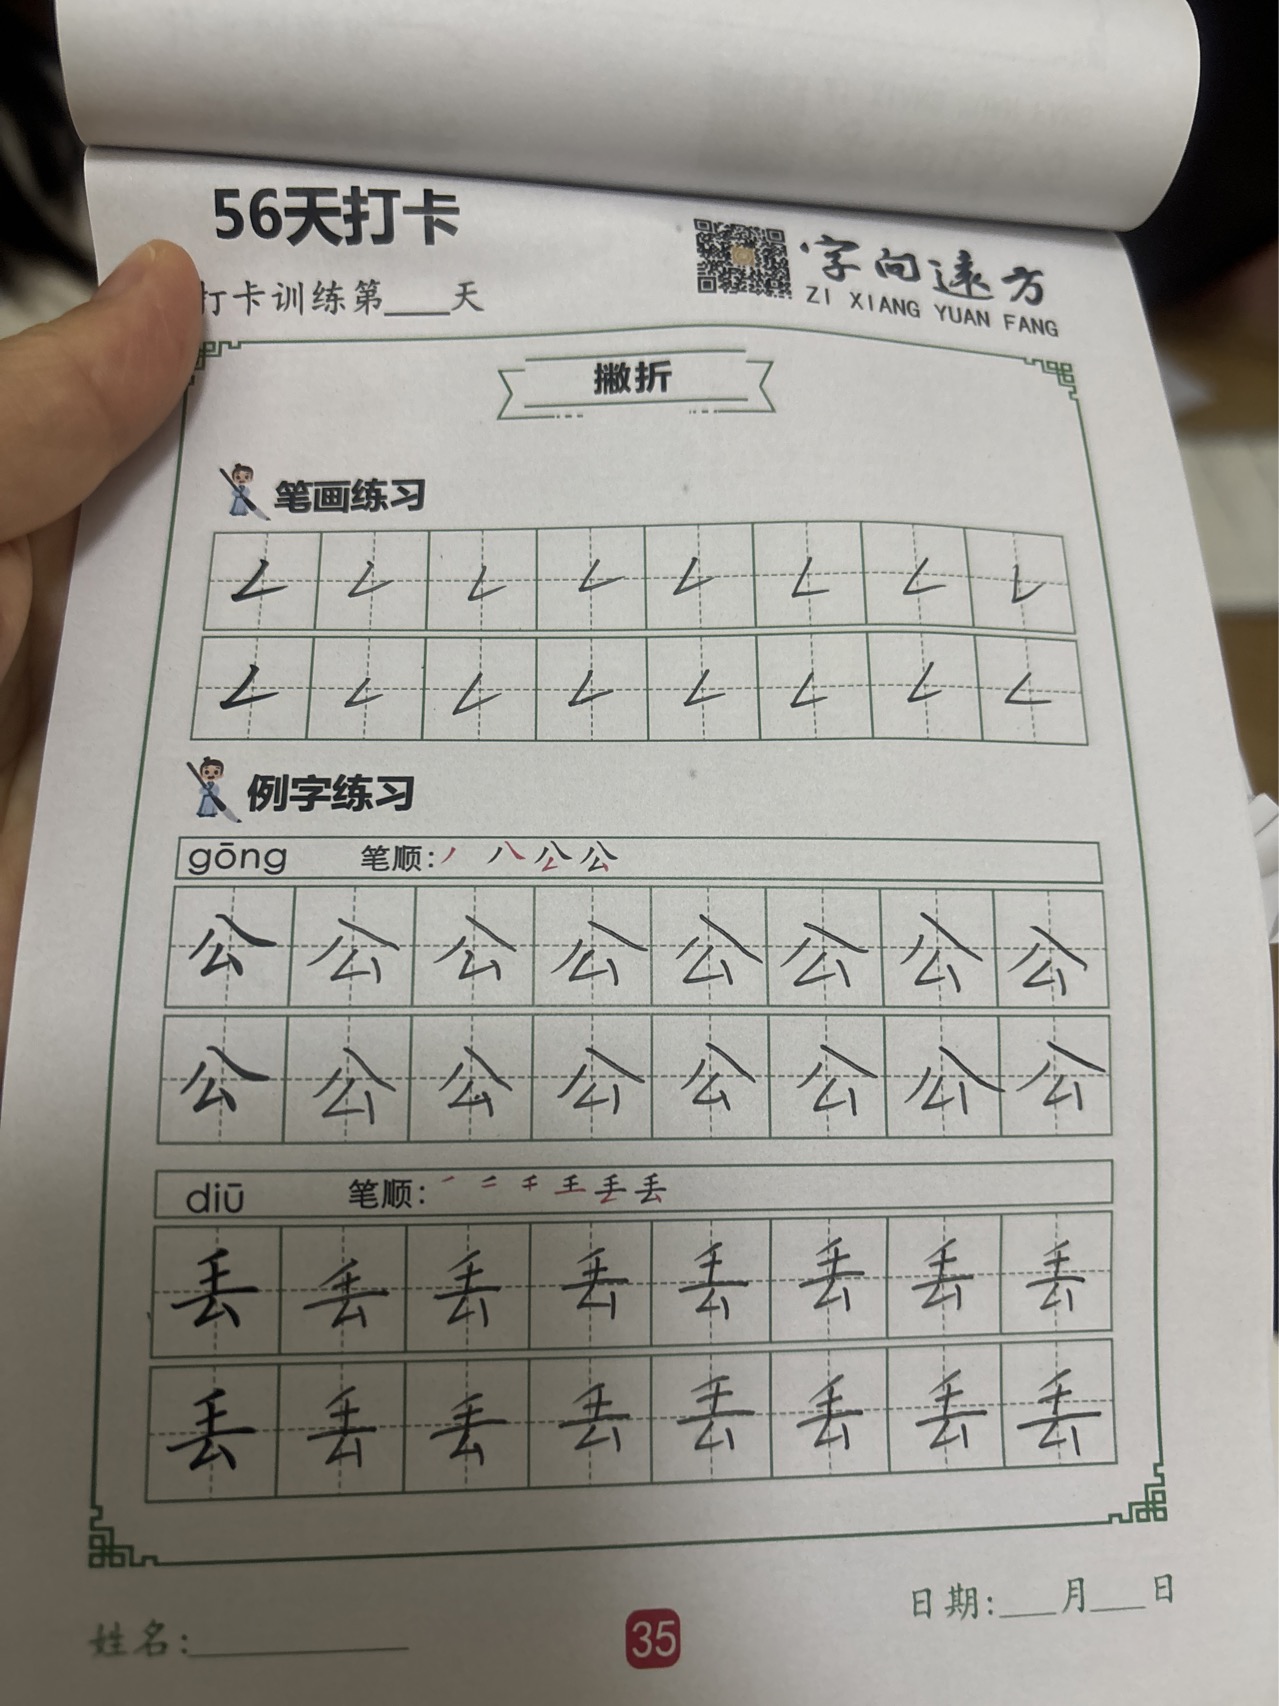 56天打卡
字向远方
ZI XIANG YUAN FANG
打卡训练第___天
撇折
笔画练习
𠃋 𠃋 𠃋 𠃋 𠃋 𠃋 𠃋 𠃋
𠃋 𠃋 𠃋 𠃋 𠃋 𠃋 𠃋 𠃋
例字练习
gōng 笔顺:丿 八 公 公
公 公 公 公 公 公 公 公
公 公 公 公 公 公 公 公
diū 笔顺:㇒ 二 千 王 丢 丢
丢 丢 丢 丢 丢 丢 丢 丢
丢 丢 丢 丢 丢 丢 丢 丢
日期:___月___日
姓名:___
35